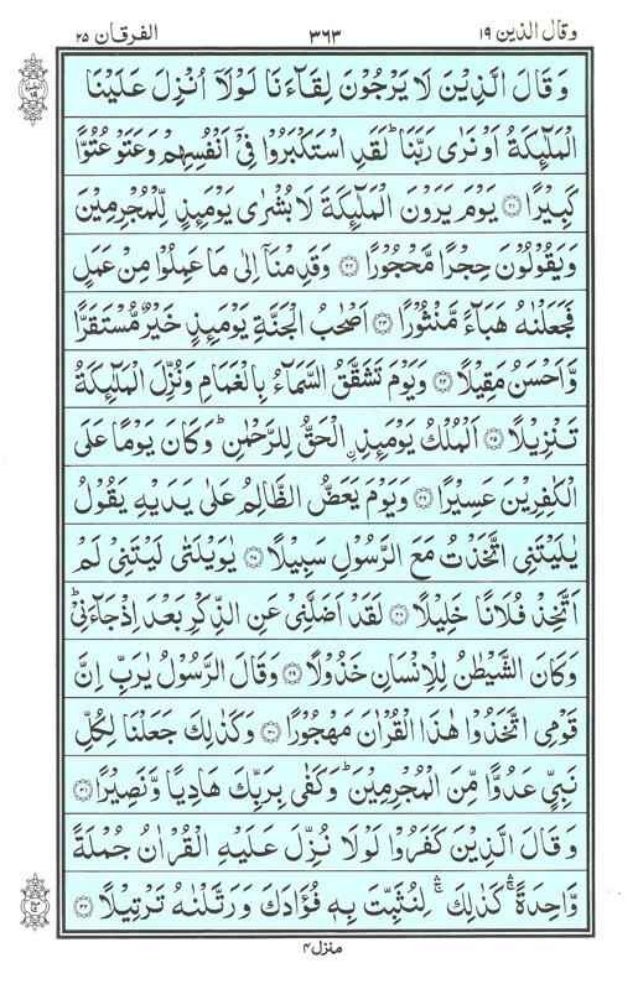 وقال الذين ١٩ ٣٦٣ الفرقان ٢٥
وَقَالَ الَّذِيْنَ لَا يَرْجُوْنَ لِقَآءَنَا لَوْلَآ اُنْزِلَ عَلَيْنَا
الْمَلٰٓئِكَةُ اَوْ نَرٰى رَبَّنَا ؕ لَقَدِ اسْتَكْبَرُوْا فِيْٓ اَنْفُسِهِمْ وَعَتَوْ عُتُوًّا
كَبِيْرًا ۝٢١ يَوْمَ يَرَوْنَ الْمَلٰٓئِكَةَ لَا بُشْرٰى يَوْمَئِذٍ لِّلْمُجْرِمِيْنَ
وَيَقُوْلُوْنَ حِجْرًا مَّحْجُوْرًا ۝٢٢ وَقَدِمْنَآ اِلٰى مَا عَمِلُوْا مِنْ عَمَلٍ
فَجَعَلْنٰهُ هَبَآءً مَّنْثُوْرًا ۝٢٣ اَصْحٰبُ الْجَنَّةِ يَوْمَئِذٍ خَيْرٌ مُّسْتَقَرًّا
وَّاَحْسَنُ مَقِيْلًا ۝٢٤ وَيَوْمَ تَشَقَّقُ السَّمَآءُ بِالْغَمَامِ وَنُزِّلَ الْمَلٰٓئِكَةُ
تَنْزِيْلًا ۝٢٥ اَلْمُلْكُ يَوْمَئِذِ ۨالْحَقُّ لِلرَّحْمٰنِ ؕ وَكَانَ يَوْمًا عَلَى
الْكٰفِرِيْنَ عَسِيْرًا ۝٢٦ وَيَوْمَ يَعَضُّ الظَّالِمُ عَلٰى يَدَيْهِ يَقُوْلُ
يٰلَيْتَنِى اتَّخَذْتُ مَعَ الرَّسُوْلِ سَبِيْلًا ۝٢٧ يٰوَيْلَتٰى لَيْتَنِيْ لَمْ
اَتَّخِذْ فُلَانًا خَلِيْلًا ۝٢٨ لَقَدْ اَضَلَّنِيْ عَنِ الذِّكْرِ بَعْدَ اِذْ جَآءَنِيْ ؕ
وَكَانَ الشَّيْطٰنُ لِلْاِنْسَانِ خَذُوْلًا ۝٢٩ وَقَالَ الرَّسُوْلُ يٰرَبِّ اِنَّ
قَوْمِى اتَّخَذُوْا هٰذَا الْقُرْاٰنَ مَهْجُوْرًا ۝٣٠ وَكَذٰلِكَ جَعَلْنَا لِكُلِّ
نَبِيٍّ عَدُوًّا مِّنَ الْمُجْرِمِيْنَ ؕ وَكَفٰى بِرَبِّكَ هَادِيًا وَّنَصِيْرًا ۝٣١
وَقَالَ الَّذِيْنَ كَفَرُوْا لَوْلَا نُزِّلَ عَلَيْهِ الْقُرْاٰنُ جُمْلَةً
وَّاحِدَةً ۛۚ كَذٰلِكَ ۛۚ لِنُثَبِّتَ بِهٖ فُؤَادَكَ وَرَتَّلْنٰهُ تَرْتِيْلًا ۝٣٢
منزل ٤